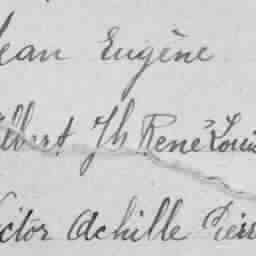 Jean Eugène
Albert Jh René Louis
Victor Achille Pierre